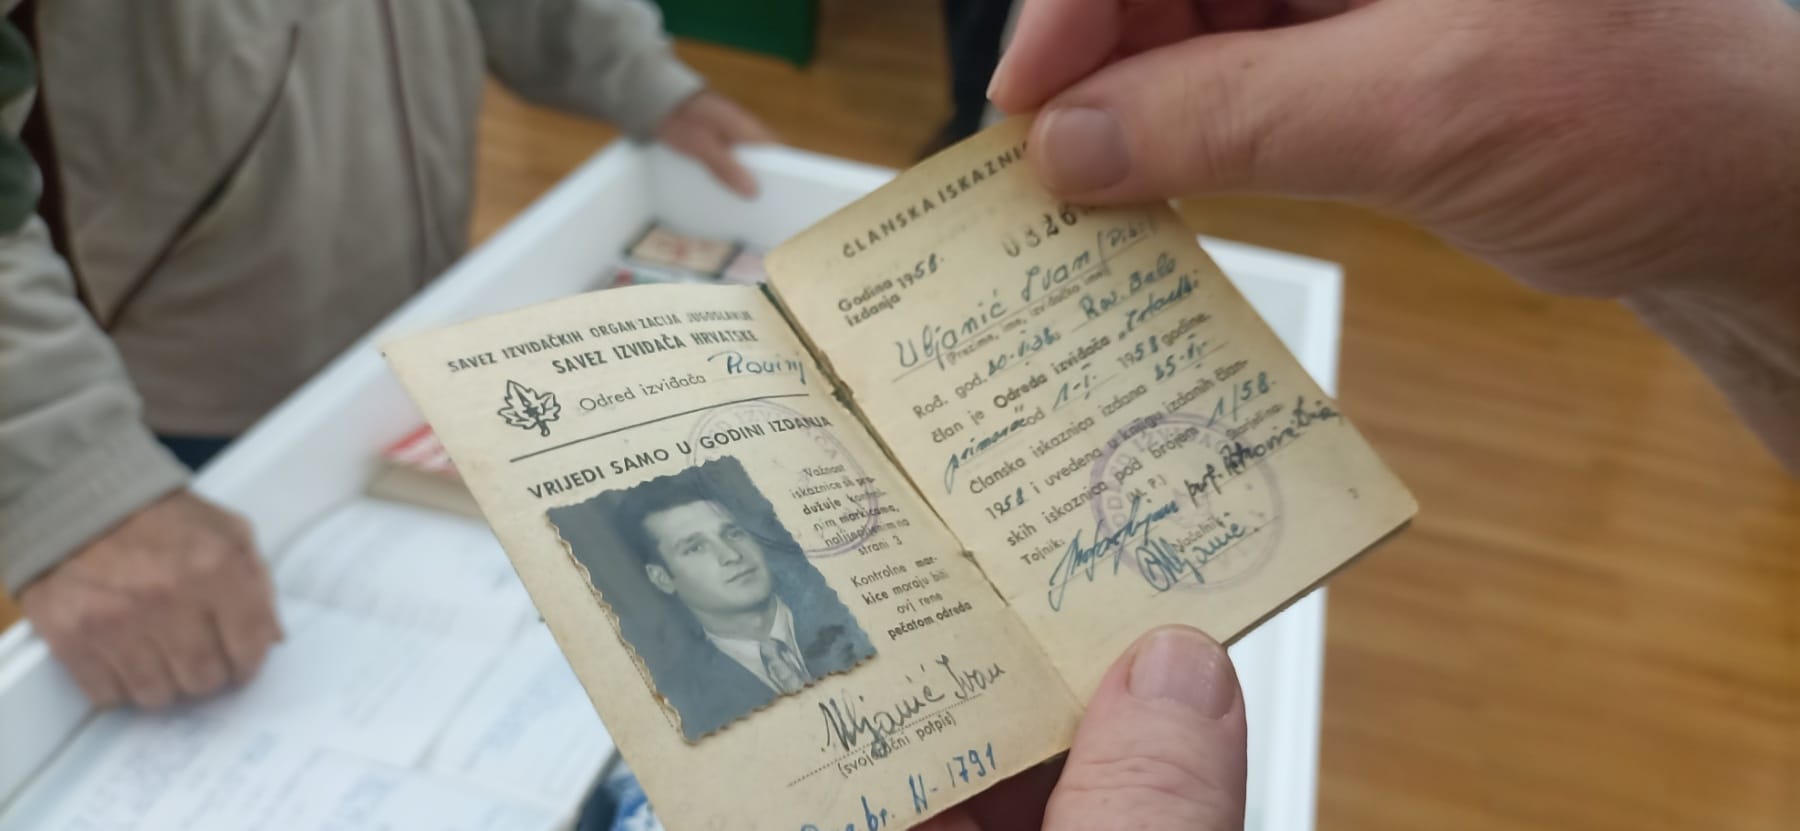 SAVEZ IZVIDAČKIH ORGAN·ZACIJA JUGOSLAVIJE
SAVEZ IZVIĐAČA HRVATSKE
Odred izviđača Rovinj
VRIJEDI SAMO U GODINI IZDANJA
Važnost
iskaznice se pro-
dužuje kontrol-
nim markicama,
naljepljenim na
strani 3
Kontrolne mar-
kice moraju biti
ovjerene
pečatom odreda
Uljanić Ivan
(svojeručni potpis)
br. H-1791
ČLANSKA ISKAZNIC
Godina 1958.
izdanja
Uljanić Ivan
(Prezime, ime, izviđačko ime)
Rođ. god. Rov. Selo
član je Odreda izviđača
od 1-I- 1958 godine.
Članska iskaznica izdana
1958 i uvedena u knjigu izdanih član-
skih iskaznica pod brojem 1/58.
(M. P.) Starješina:
Tajnik: prof.
Načelnik:
Uljanić